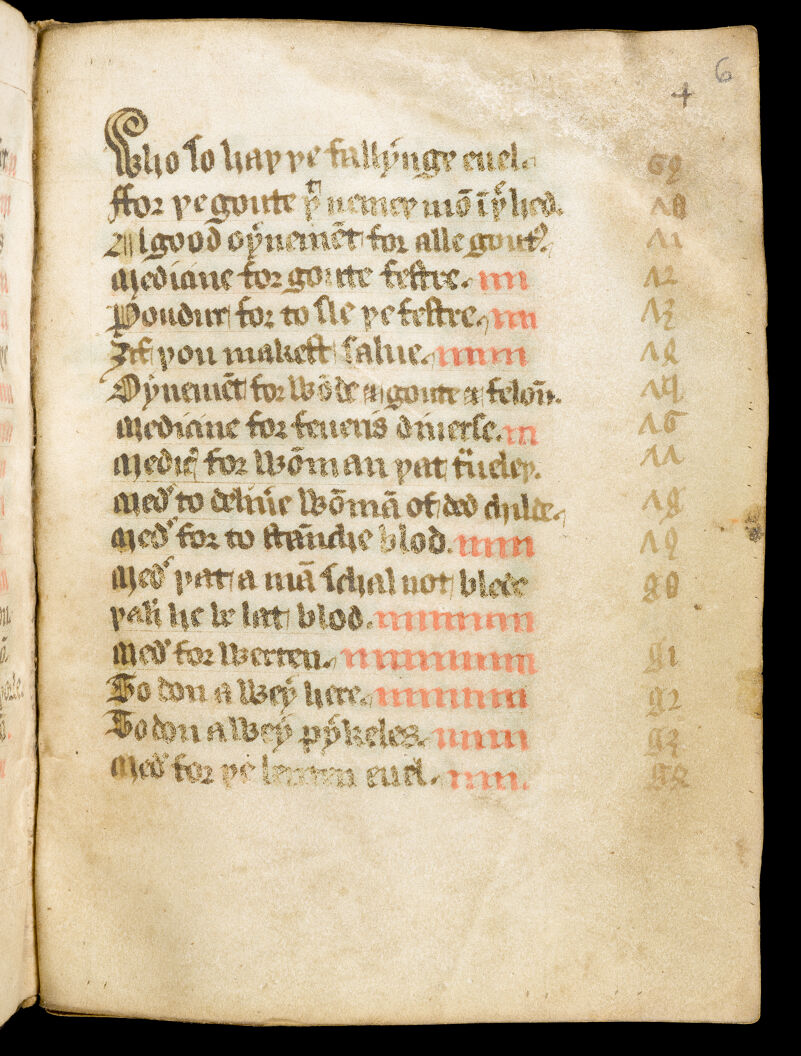 6
4
Who so haþ þe fallẏnge euel. 69
ffor þe goute þͭ nemeþ mō ī þͬ hed. 70
A good oẏnemēt for alle gout͛. 71
Mediciue for goute festre. 72
Poudur for to sle þe festre. 73
Ȝif þou makest salue. 74
Oẏnemēt for wōde ⁊ goute ⁊ felōn. 75
Mediciue for feueris diuerse. 76
Medic͛ for wōman þat tͥueleþ. 77
Med͛ to delyu͛e wōmā of ded childe. 78
Med͛ for to stāuche blod. 79
Med͛ þat a mā schal not blede 80
þaȝ he be lat blod.
Med͛ for werten. 81
To don a weẏ here. 82
To don a weẏ pẏkeles. 83
Med͛ for þe euel. 84